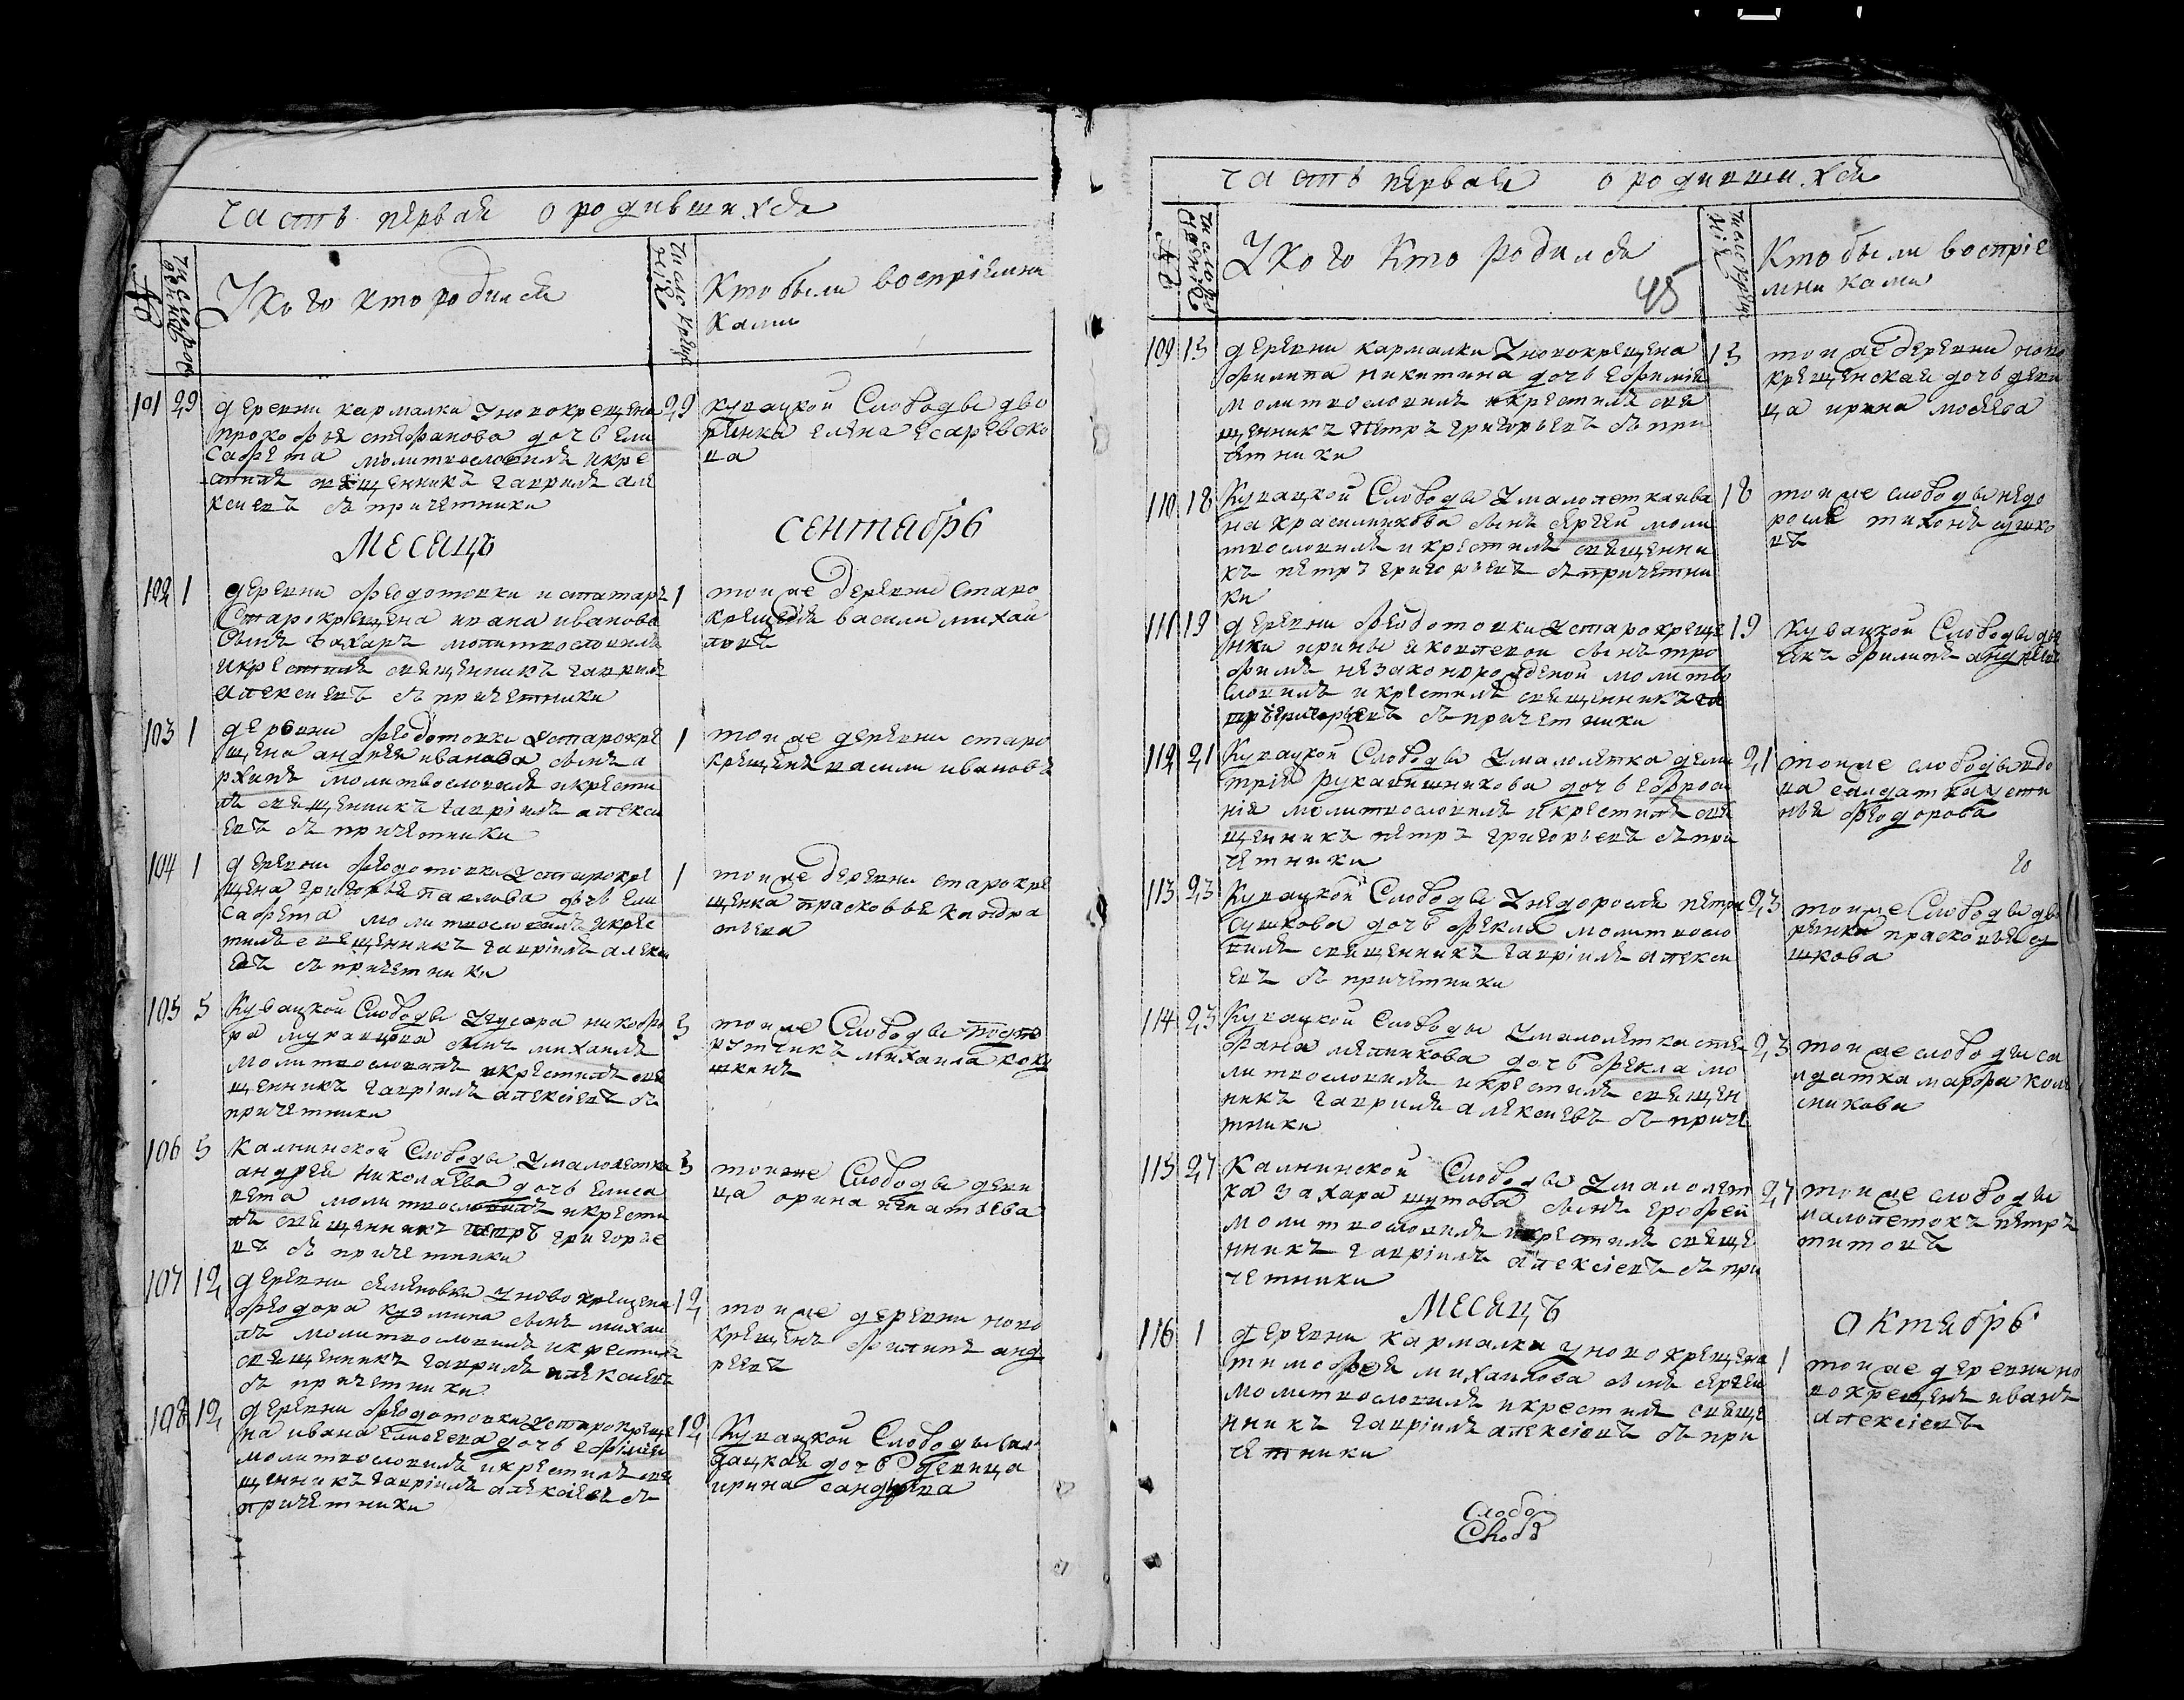 часть первая о родившихся
№
число рождения
У кого кто родился
число крещения
Кто были восприемни
ками
101 29
деревни кармалки у новокрещена
прокофья стефанова дочь ели
сафета молитвословилъ и кре
стилъ священникъ гаврилъ але
ксиевъ съ причетники
29
кувацкой Слободы дво
рянка елена есаревско
ва
Месяцъ сентябрь
102 1
деревни федотовки и статаръ
старокрещена ивана иванова
сынъ захаръ молитвословилъ
и крестилъ священникъ гаврилъ
алексиевъ съ причетники
1
тойже деревни старо
крещенъ васили михаи
ловъ
103 1
деревни федотовки у старокре
щена андрея иванова сынъ а
рхипъ молитвословилъ и крести
лъ священникъ гавриилъ алекси
евъ съ причетники
1
тойже деревни старо
крещенъ васили ивановъ
104 1
деревни федотовки у старокре
щена григорья павлова дочь ели
сафета молитвословилъ и крес
тилъ священникъ гавриилъ алекси
евъ съ причетники
1
тойже деревни старокре
щенка прасковья кандра
тьева
105 5
Кувацкой Слободы у гусара никифо
ра муравцова сынъ михаилъ
молитвословилъ и крестилъ свя
щенникъ гавриилъ алексіевъ съ
причетники
5
тойже Слободы
михаила коку
шкинъ
106 5
Калнинской Слободы у малолетка
андрея николаева дочь елиса
вета молитвословилъ и крести
лъ священникъ петръ григорье
въ съ причетники
5
тойже Слободы деви
ца орина игнатьева
107 12
деревни семеновки у новокрещена
феодора кузмина сынъ михаи
лъ молитвословилъ и крестилъ
священникъ гаврилъ алексиевъ
съ причетники
12
тойже деревни ново
крещенъ филипъ анд
реевъ
108 12
деревни федотовки у старокреще
на ивана елисеева дочь ефимия
молитвословилъ и крестилъ свя
щенникъ гавриилъ алексиевъ съ
причетники
12
Кувацкой Слободы сал
дацкая дочь девица
ирина
часть первая о родившихся
№
число рождения
У кого кто родился
45
число крещ
Кто были восприе
мниками
109 15
деревни кармалки у новокрещена
филипа никитина дочь ефимия
молитвословилъ и крестилъ свя
щенникъ петръ григорьевъ съ при
четники
15
тойже деревни ново
крещенская дочь деви
ца ирина мосеева
110 18
Кувацкой Слободы у малолетка ива
на красилникова сынъ сергей моли
твословилъ и крестилъ священни
къ петръ григорьевъ съ причетни
ки
18
тойже слободы недо
росль тихонъ сушко
въ
111 19
деревни феодотовки у старокреще
нки ирины яковлевой сынъ тро
фимъ незаконорожденой молитво
словилъ и крестилъ священникъ
петръ григорьевъ съ причетники
19
Кувацкой Слободы
филипъ андреевъ
112 21
Кувацкой Слободы у малолетка дими
трия рукавишникова дочь ефроси
ния молитвословилъ и крестилъ свя
щенникъ петръ григорьевъ съ при
четники
21
тойже слободы вдо
ва салдатка усти
нья феодорова
113 23
Кувацкой Слободы у недоросля петра
сушкова дочь фекла молитвосло
вилъ священникъ гавриилъ алекси
евъ съ причетники
23
тойже Слободы дво
рянка прасковья су
шкова
114 23
Кувацкой Слободы у малолетка сте
фана мелникова дочь фекла мо
литвословилъ и крестилъ священ
никъ гаврилъ алексиевъ съ приче
тники
23
тойже слободы са
лдатка марфа кол
сникова
115 27
Калнинской Слободы у малолет
ка захара шутова сынъ ерофей
молитвословилъ и крестилъ свяще
нникъ гавриилъ алексіевъ съ при
четники
27
тойже слободы
малолетокъ петръ
титовъ
Месяцъ октябрь
116 1
деревни кармалки у новокрещена
тимофея михаилова сынъ сергеи
молитвословилъ и крестилъ свяще
нникъ гавриилъ алексіевъ съ при
четники
1
тойже деревни но
вокрещенъ иванъ
алексіевъ
слобо